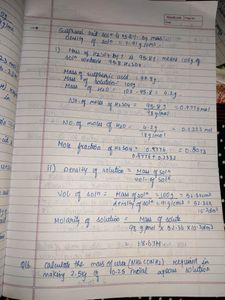 Sulphuric acid solⁿ is 95.8% by mass.
density of solⁿ = 1.91 g/cm³
i) Mass of H₂SO₄ by % is 95.8%, means 100g of
solⁿ contains 95.8 H₂SO₄.
Mass of sulphuric acid = 95.8g.
Mass of solution = 100g
Mass of H₂O = 100 - 95.8 = 4.2g
No. of moles of H₂SO₄ = 95.8g / 98g/mol = 0.9776 mol
No. of moles of H₂O = 4.2g / 18g/mol = 0.2333 mol
Mole fraction of H₂SO₄ = 0.9776 / 0.9776 + 0.2333 = 0.8073
ii) Density of solution = Mass of solⁿ / vol. of solⁿ
Vol of solⁿ = Mass of solⁿ / density of solⁿ = 100g / 1.91 g/cm³
Molarity of solution = Mass of solute
Q16 Calculate the mass of urea (NH₂CONH₂) required in
making 2.5kg of 0.25 molal aqueous solution